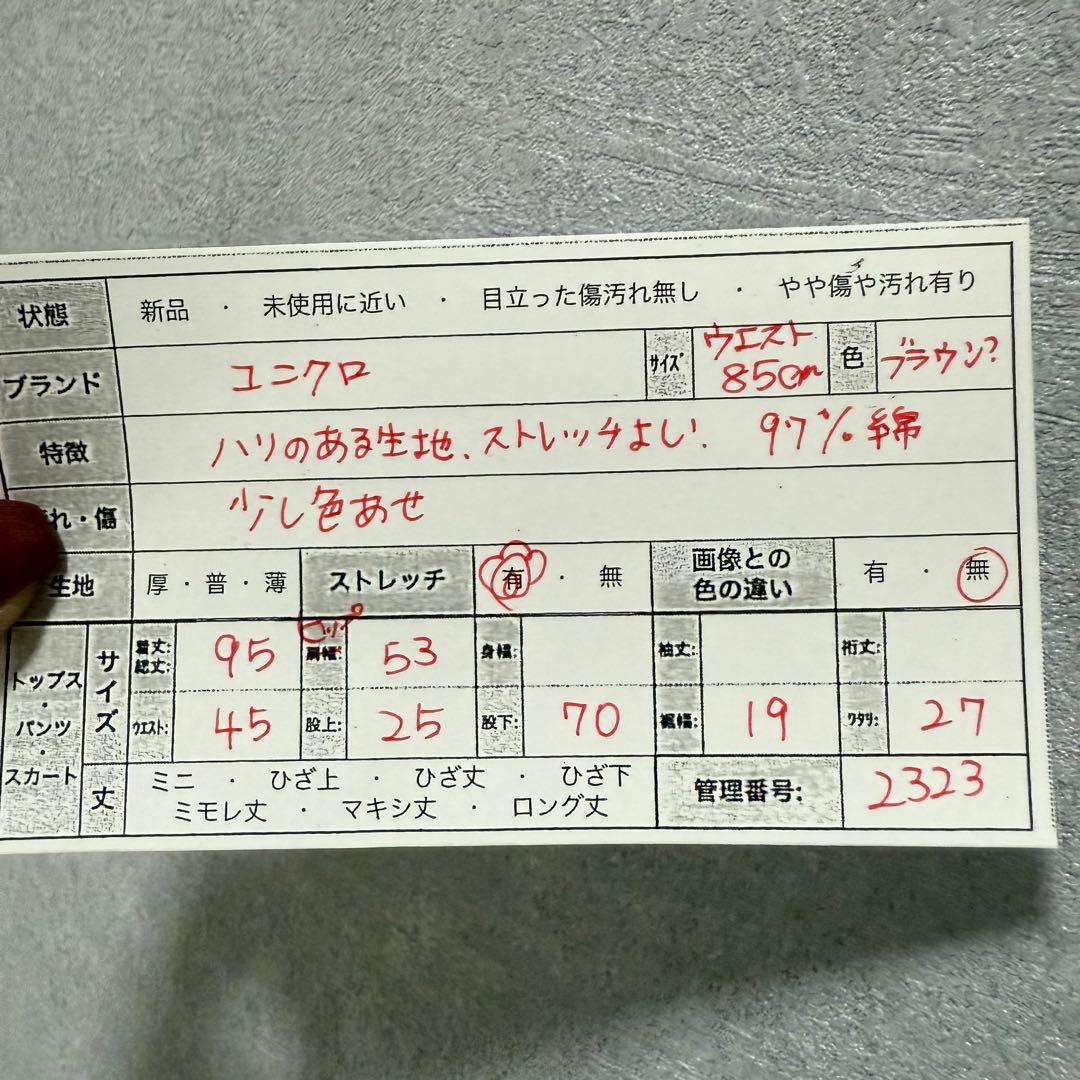 状態 新品 ・ 未使用に近い ・ 目立った傷汚れ無し ・ やや傷や汚れ有り
ブランド ユニクロ サイズ ウエスト 85cm 色 ブラウン?
特徴 ハリのある生地、ストレッチよい. 97%綿
れ・傷 少し色あせ
生地 厚・普・薄 ストレッチ 有 ・ 無 画像との色の違い 有 ・ 無
トップス・パンツ・スカート サイズ 着丈: 総丈: 95 ヒップ 肩幅: 53 身幅: 袖丈: 裄丈:
ウエスト: 45 股上: 25 股下: 70 裾幅: 19 ワタリ: 27
丈 ミニ ・ ひざ上 ・ ひざ丈 ・ ひざ下
ミモレ丈 ・ マキシ丈 ・ ロング丈 管理番号: 2323